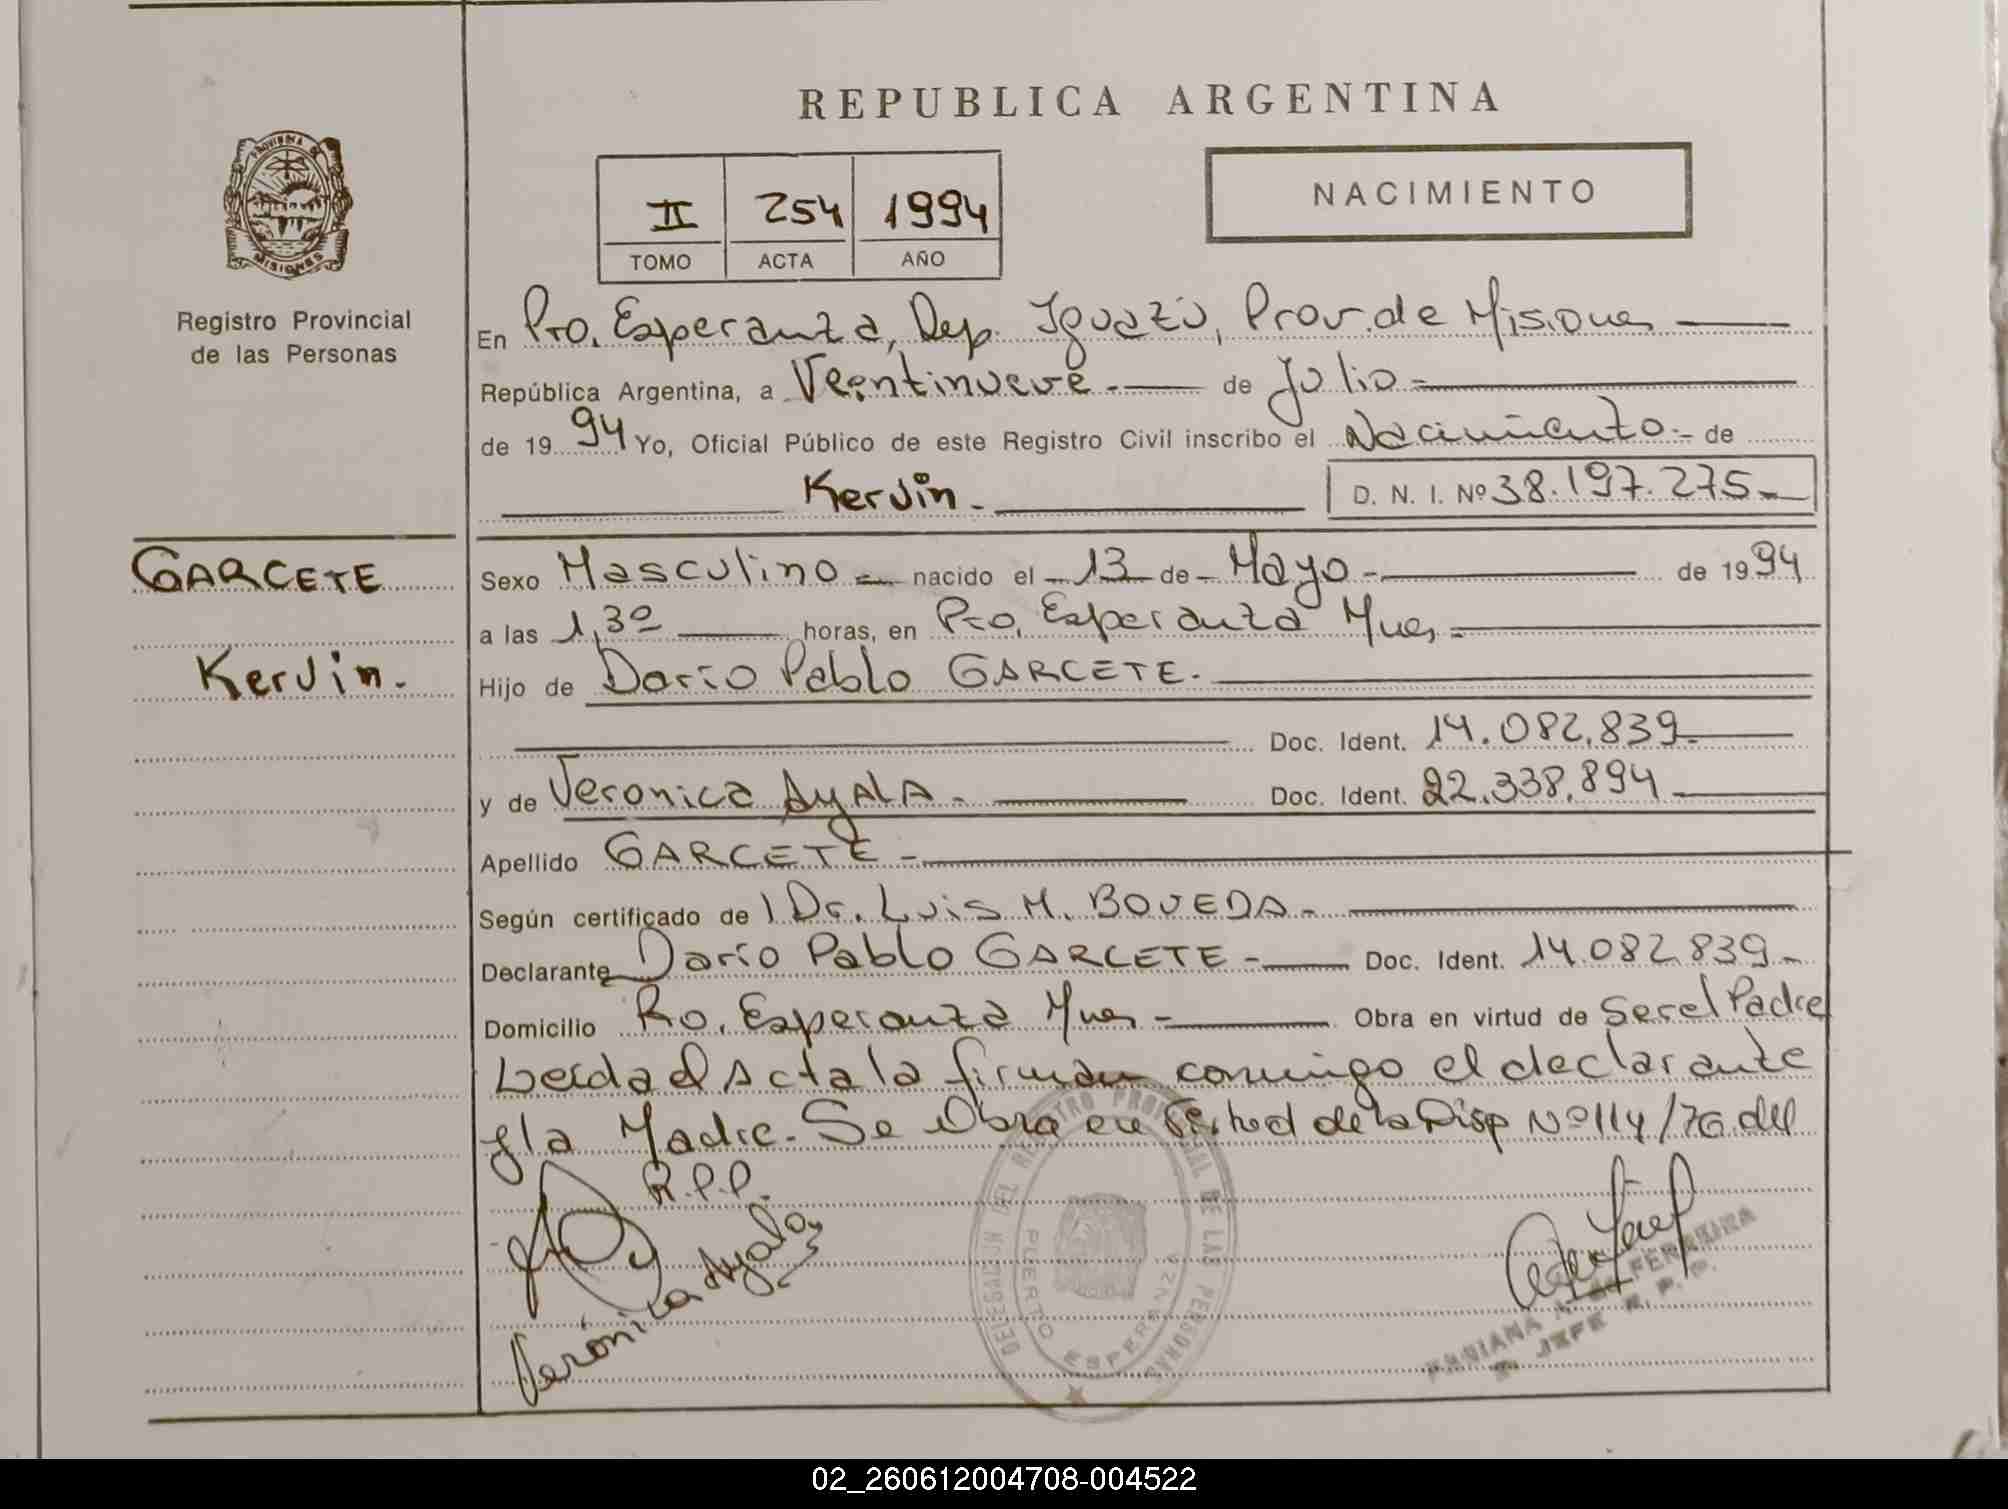 REPUBLICA ARGENTINA
PROVINCIA DE
MISIONES
Registro Provincial
de las Personas
II 254 1994
TOMO ACTA AÑO
NACIMIENTO
En Pto. Esperanza, Dep. Iguazú, Prov. de Misiones
República Argentina, a Veintinueve.- de Julio-
de 1994 Yo, Oficial Público de este Registro Civil inscribo el Nacimiento.- de
Kervin.- D. N. I. Nº 38.197.275.-
GARCETE
Kervin.
Sexo Masculino - nacido el - 13 de - Mayo - de 1994
a las 1,30 horas, en Pto. Esperanza Mnes -
Hijo de Darío Pablo GARCETE.
Doc. Ident. 14.082.839-
y de Veronica AyALA - Doc. Ident. 22.338.894
Apellido GARCETE -
Según certificado de Dr. Luis M. BOVEDA -
Declarante Darío Pablo GARCETE - Doc. Ident. 14.082.839-
Domicilio Pto. Esperanza Mnes - Obra en virtud de Ser el Padre
Leida el Acta la firman conmigo el declarante
y la Madre. Se Obra en Virtud de la Disp Nº 114/76 del
R.P.P.
Verónica Ayala
DELEGACION DEL REGISTRO PROVINCIAL DE LAS PERSONAS
PUERTO ESPERANZA
FERREIRA
JEFE R. P. P.
02_260612004708-004522